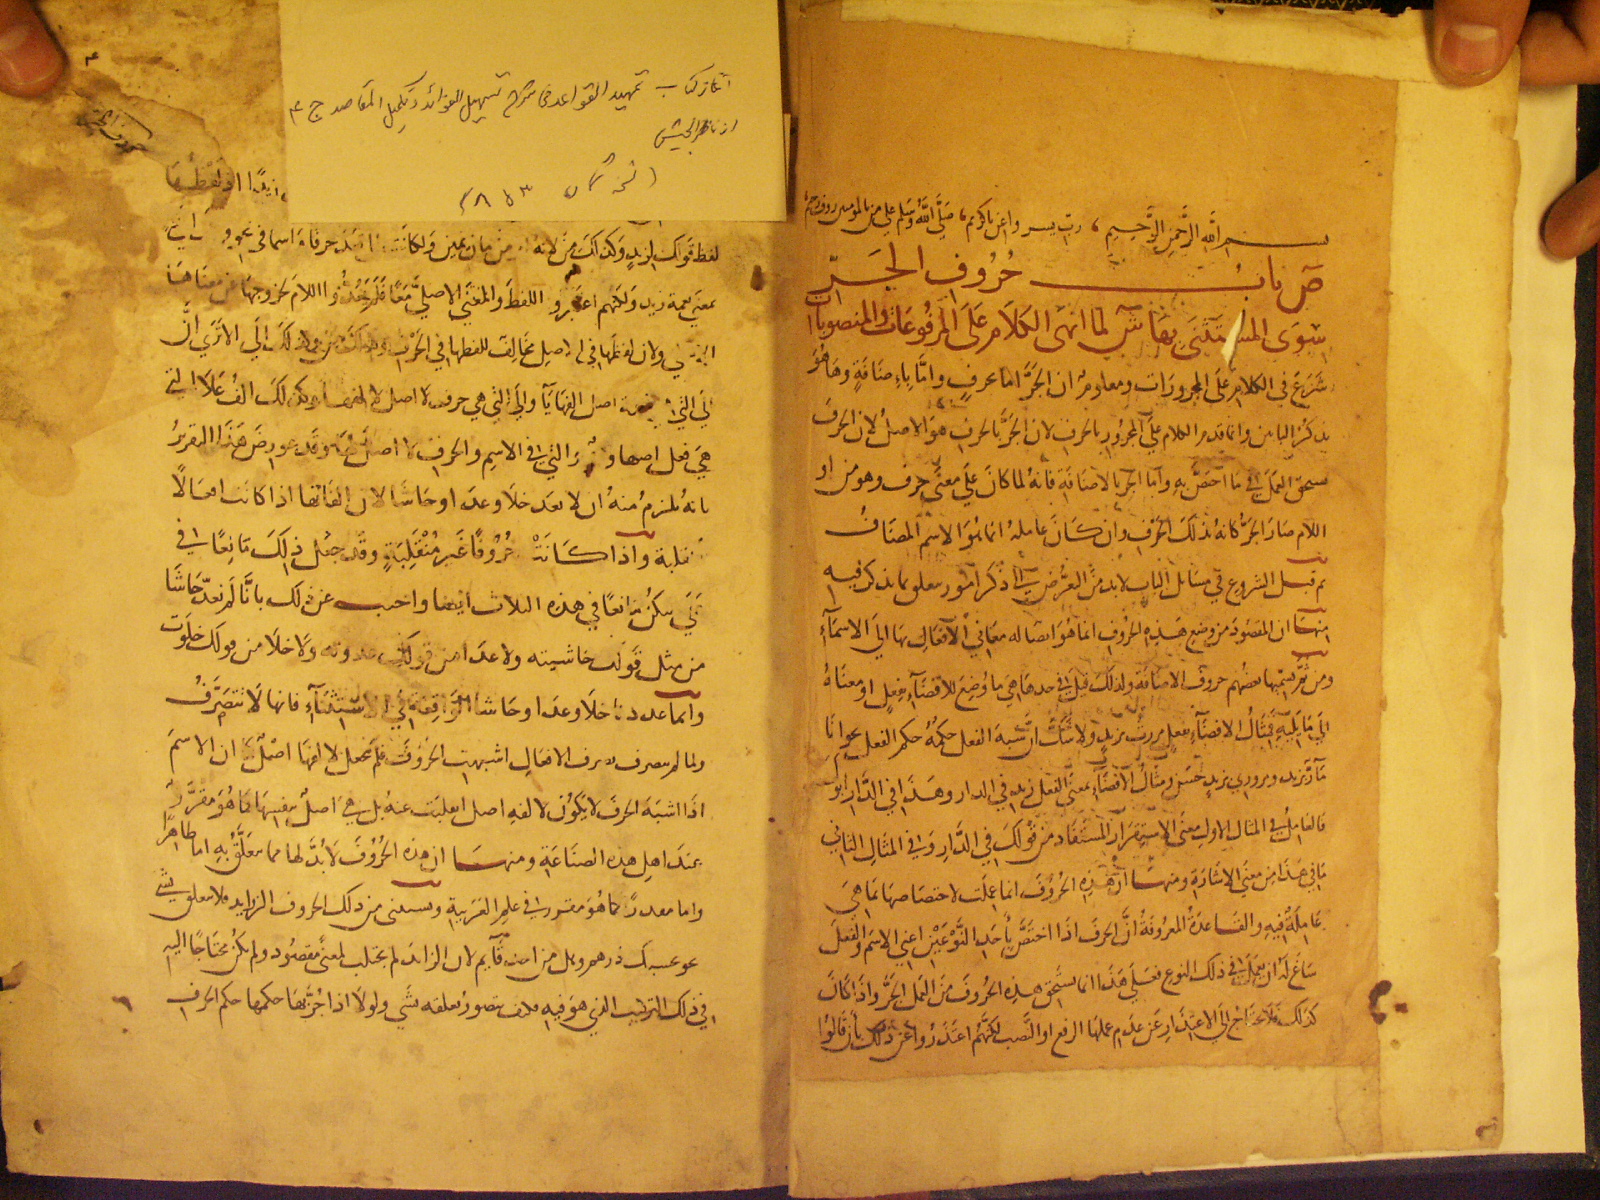 بسم الله الرحمن الرحيم، رب يسر واعن يا كريم، صلى الله وسلم على من بالمؤمنين رؤف رحيم
ص باب حروف الجر
سوى المستثنى بها ش لما انهى الكلام على المرفوعات والمنصوبات
شرع في الكلام على المجرورات ومعلوم ان الجر اما بحرف واما باضافة وها هو
يذكر البابين وانما قدم الكلام على المجرور بالحرف لان الجر بالحرف هو الاصل لان الحرف
يستحق العمل في ما اختص به واما الجر بالاضافة فانه لما كان على معنى حرف وهو من او
اللام صار الجر كانه بذلك الحرف وان كان عامله انما هو الاسم المضاف
ثم قبل الشروع في مسائل الباب لابد من التعرض الى ذكر امور يتعلق بما يذكر فيه
منها ان المقصود من وضع هذه الحروف انما هو ايصاله معاني الافعال بها الى الاسماء
ومن ثم يسميها بعضهم حروف الاضافة ولذلك قيل في حدها هي ما وضع للافضاء بفعل او معناه
الى ما يليه فمثال الافضاء بفعل مررت بزيد ولا شك ان شبه الفعل حكمه حكم الفعل نحو انا
مار بزيد ومروري بزيد حسن ومثال الافضاء بمعنى الفعل زيد في الدار وهذا في الدار ابوك
فالعامل في المثال الاول معنى الاستقرار المستفاد من قولك في الدار وفي المثال الثاني
ما في هذا من معنى الاشارة ومنها ان هذه الحروف انما عملت لاختصاصها بما هي
عاملة فيه والقاعدة المعروفة ان الحرف اذا اختص باحد النوعين اعني الاسم والفعل
ساغ له ان يعمل في ذلك النوع فعلى هذا انما تستحق هذه الحروف من العمل الجر واذا كان
كذلك فلا يحتاج الى الاعتذار عن عدم عملها الرفع او النصب لكنهم اعتذروا عن ذلك بان قالوا
آغاز كتاب تمهيد القواعد في شرح تسهيل الفوائد وتكميل المقاصد ج ٤
از ناظر الجيش
ايضا او لفظها
لفظ قولك لزيد وكذلك من لانه
بمعنى نعمة زيد ولكنهم اعتبروا اللفظ والمعنى الاصلي معا واللام لخروجها عن معناها
ولان لفظها في الاصل مخالف للفظها في الحرف الى الا ترى ان
الى التي اصل الفها يا والى التي هي حرف لا اصل لالفها وكذلك الف علا التي
هي فعل اصلها واو التي في الاسم والحرف لا اصل لها وقد عورض هذا التقرير
بانه يلزم منه ان لا يعد خلا وعدا وحاشا لان الفاتها اذا كانت افعالا
منقلبة واذا كانت حروفا غير منقلبة وقد جعل ذلك مانعا في
يكن مانعا في هذه الثلاث ايضا واجيب عن ذلك بانا لم نعد حاشا
من مثل قولك حاشيته ولا عدا من قولك عدوته ولا خلا من قولك خلوت
وانما عددنا خلا وعدا وحاشا الواقعة في الاستثناء فانها لا تتصرف
ولما لم تتصرف تصرف الافعال اشبهت الحروف فلم يجعل لالفها اصلا ان الاسم
اذا اشبه الحرف لا يكون لالفه اصل انقلبت عنه بل هي اصل بنفسها كما هو مقرر
عند اهل هذه الصناعة ومنها ان هذه الحروف لا بد لها مما تتعلق به اما ظاهرا
واما مقدرا كما هو مقرر في علم العربية ويستثنى من ذلك الحروف الزوايد فلا تعلق بشيء
نحو بحسبك درهم وهل من احد قايم لان الزايد لم يجتلب لمعنى مقصود ولم يكن محتاجا اليه
في ذلك التركيب الذي هو فيه فكيف يتصور تعلقه بشي ولولا اذا جر بها حكمها حكم الحرف